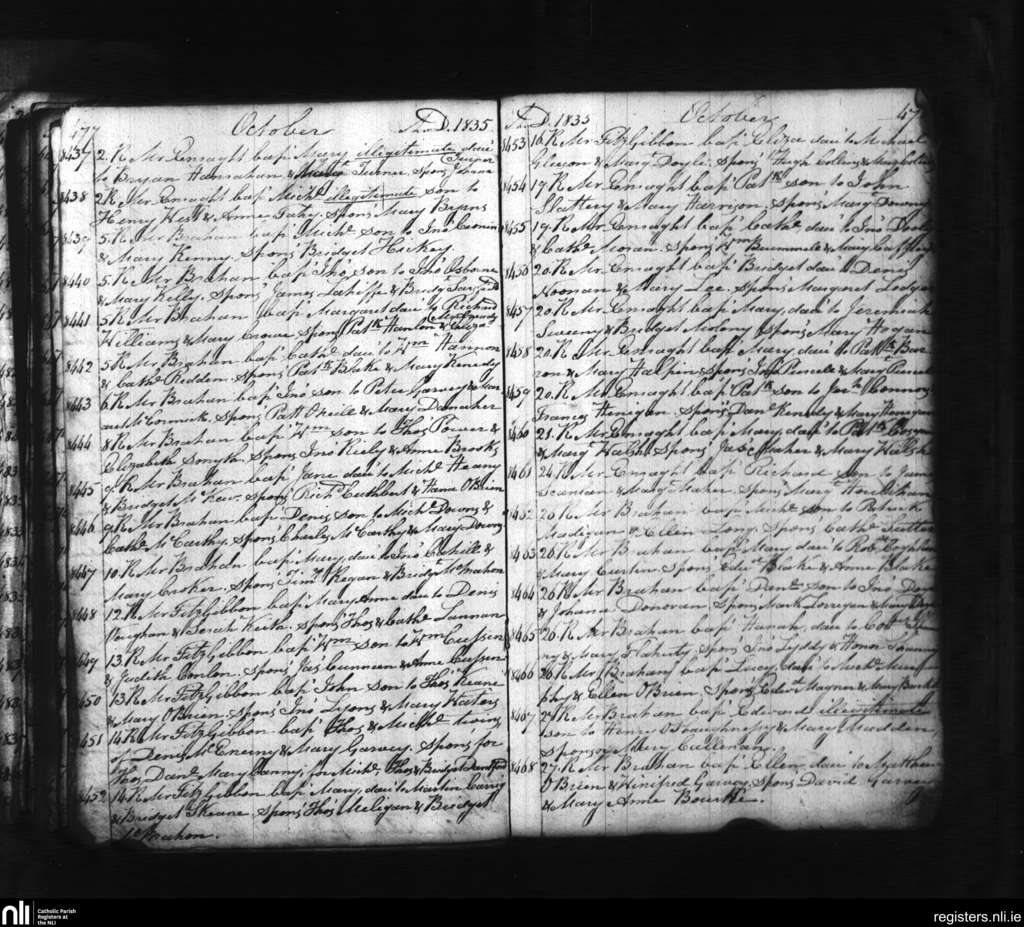 477 October Ano D. 1835.
8437 2. R Mr Enraght bap'd Mary illegitimate dau'r
to Bryan Hanrahan & Turner. Spon's
8438 2 R. Mr Enraght bap'd Mich'l illegitimate son to
Henry West & Anne Fahy. Spons Mary Byrns
8439 5. R. Mr Brahan bap'd Mich'l son to Jno Cronin
& Mary Kenny. Spons Bridget Hickey.
8440 5. R Mr Brahan bap'd Jno, son to Jno Osborne
& Mary Kelly. Spons James Lahiffe & Bridg't
8441 5 R Mr Brahan bap'd Margaret dau'r to Richard
Williams & Mary Crowe Spons Pat'k Hanlon & Eliza
8442 5 R. Mr Brahan bap'd Cath'e dau'r to Wm Hannon
& Cath'e Redden. Spons Pat'k Blake & Mary Kennedy
8443 6. R Mr Brahan bap'd Jno son to Peter Garvey & Mar
aret McCormick. Spons Patt O'Neill & Mary Danaher
8444 8 R Mr Brahan bap'd Wm son to Thos Power &
Elizabeth Smyth. Spons Jno Riely & Anne Brooks
8445 9. R Mr Brahan bap'd Jane dau'r to Mich'l Heany
& Bridget Spons Rich'd Cuthbert & Hana O'Brien
8446 9 R Mr Brahan bap'd Denis son to Mich'l Downs &
Cath'e McCarthy. Spons Charles McCarthy & Mary Downs
8447 10. R Mr Brahan bap'd Mary dau'r to Jno Cahill &
Mary Croker. Spons Tim'y Regan & Bridg't McMahon
8448 12 R Mr FitzGibbon bap'd Mary Anne dau'r to Denis
Vaughan & Sarah Spons Thos & Cath'e Lannan
8449 13. R Mr FitzGibbon bap'd Wm son to Wm Cussen
& Judith Conlon. Spons Jas Cunneen & Anne Cussen
8450 13 R Mr FitzGibbon bap'd John son to Thos Keane
& Mary O'Brien. Spons Jno Lyons & Mary Waters
8451 14 R Mr FitzGibbon bap'd Thos & Mich'l twins
of Denis McEnerny & Mary Garvey. Spons for
Thos, Dan'l & Mary Canny, for Mich'l Thos & Bridget
8452 14 R Mr FitzGibbon bap'd Mary, dau'r to Martin Carrig
& Bridget Keane. Spons Thos Meligan & Bridget
McMahon.
Ano D. 1835 October 47
8453 16. R Mr FitzGibbon bap'd Eliza dau'r to Michael
Gleeson & Mary Doyle. Spons Hugh Collins & Mary
8454 19. R Mr Enraght bap'd Pat'k son to John
Slattery & Mary Harrison. Spons Mary Downy
8455 19. R Mr Enraght bap'd Cath'e dau'r to Jno Dooly
& Cath'e Moran. Spons Wm & Mary
8456 20. R Mr Enraght bap'd Bridget dau'r Denis
Noonan & Mary Lee. Spons Margaret Lodge
8457 20 R Mr Enraght bap'd Mary, dau'r to Jeremiah
Sweeny & Bridget Molony Spons Mary Hogan
8458 20. R Mr Enraght bap'd Mary dau'r to Patt'k Bar
ron & Mary Halpin Spons Purcell & Mary Purcell
8459 20. R Mr Enraght bap'd Pat'k son to Connors
Frances Henegan. Spons Dan'l Kennedy & Mary Henegan
8460 21. R Mr Enraght bap'd Mary, dau'r to Patt'k
& Mary Walsh. Spons Meaher & Mary Walsh
8461 24 R Mr Enraght bap'd Richard son to James
Scanlan & Mary Maher. Spons Mary Hourihan
8462 26 R Mr Brahan bap'd Mich'l son to Patrick
Madigan & Ellen Long. Spons Cath'e
8463 26. R Mr Brahan bap'd Mary dau'r to Rob't
& Mary Curtin. Spons Edw'd Blake & Anne Blake
8464 26 R Mr Brahan bap'd Dan'l son to Jno
& Johana Donovan. Spons Mark Lorrigan & Mary
8465 26. R Mr Brahan bap'd Hanah, dau'r to
& Mary Flaherty. Spons Jno Lyddy & Honor
8466 26. R Mr Brahan bap'd Lucy dau'r to Mich'l Mur
phy & Ellen O'Brien. Spons Edw'd Magner & Mary
8467 27 R Mr Brahan bap'd Edward illegitimate
son to Henry O'Shaughnessy & Mary Madden
Sponsor Mary Cullenan.
8468 27. R Mr Brahan bap'd Ellen dau'r to Matthew
O'Brien & Winifred Garvey. Spons David Garvey
& Mary Anne Bourke.
nli Catholic Parish
Registers at
the NLI
registers.nli.ie